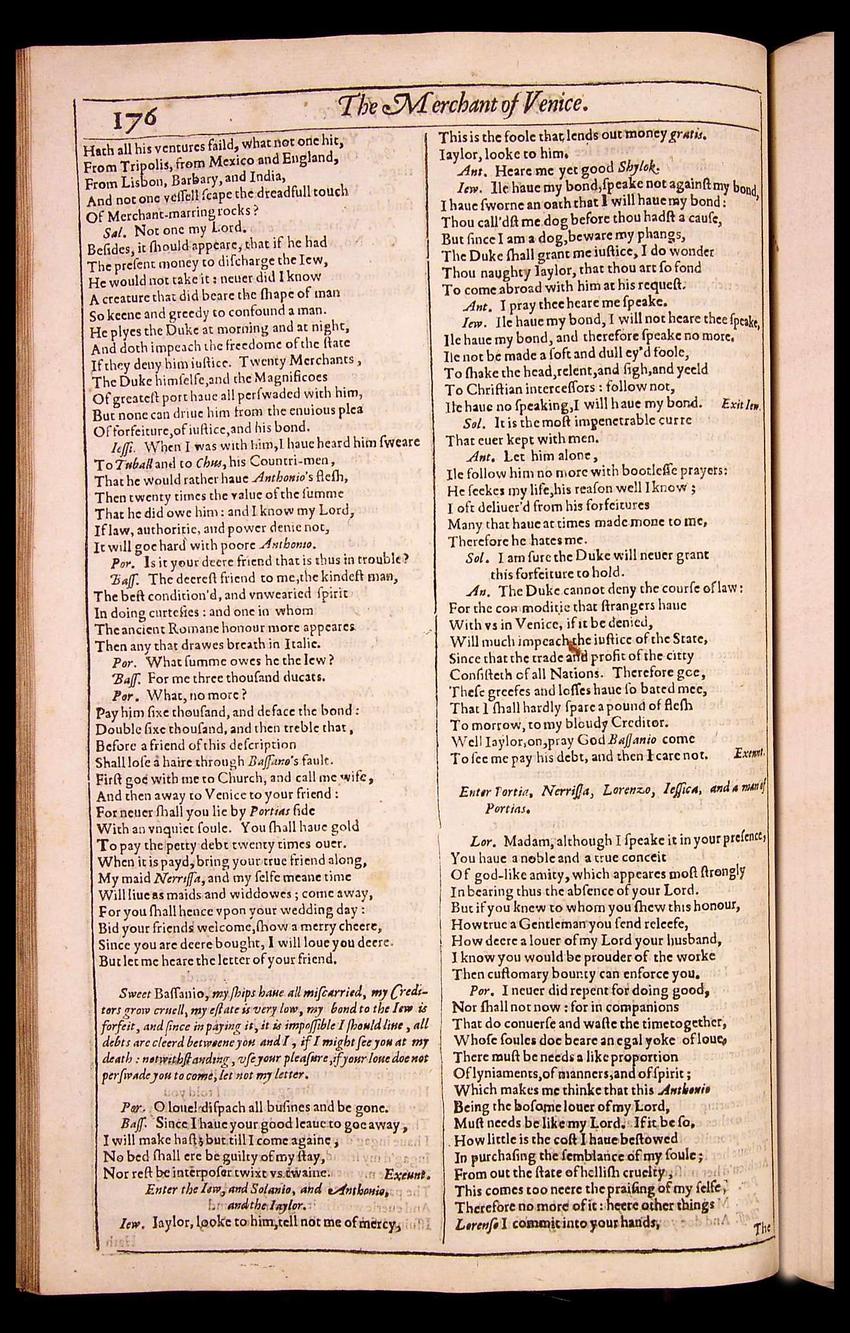 176
The Merchant of Venice.
Hath all his ventures faild, what not one hit,
From Tripolis, from Mexico and England,
From Lisbon, Barbary, and India,
And not one veſſell ſcape the dreadfull touch
Of Merchant-marring rocks?
Sal. Not one my Lord.
Beſides, it ſhould appeare, that if he had
The preſent money to diſcharge the Iew,
He would not take it: neuer did I know
A creature that did beare the ſhape of man
So keene and greedy to confound a man.
He plyes the Duke at morning and at night,
And doth impeach the freedome of the ſtate
If they deny him iuſtice. Twenty Merchants,
The Duke himſelfe, and the Magnificoes
Of greateſt port haue all perſwaded with him,
But none can driue him from the enuious plea
Of forfeiture, of iuſtice, and his bond.
Ieſſi. When I was with him, I haue heard him ſweare
To Tuball and to Chus, his Countri-men,
That he would rather haue Anthonio's fleſh,
Then twenty times the value of the ſumme
That he did owe him: and I know my Lord,
If law, authoritie, and power denie not,
It will goe hard with poore Anthonio.
Por. Is it your deere friend that is thus in trouble?
Baſſ. The deereſt friend to me, the kindeſt man,
The beſt condition'd, and vnwearied ſpirit
In doing curteſies: and one in whom
The ancient Romane honour more appeares
Then any that drawes breath in Italie.
Por. What ſumme owes he the Iew?
Baſſ. For me three thouſand ducats.
Por. What, no more?
Pay him ſixe thouſand, and deface the bond:
Double ſixe thouſand, and then treble that,
Before a friend of this deſcription
Shall loſe a haire through Baſſano's fault.
Firſt goe with me to Church, and call me wife,
And then away to Venice to your friend:
For neuer ſhall you lie by Portias ſide
With an vnquiet ſoule. You ſhall haue gold
To pay the petty debt twenty times ouer.
When it is payd, bring your true friend along,
My maid Nerriſſa, and my ſelfe meane time
Will liue as maids and widdowes; come away,
For you ſhall hence vpon your wedding day:
Bid your friends welcome, ſhow a merry cheere,
Since you are deere bought, I will loue you deere.
But let me heare the letter of your friend.
Sweet Baſſanio, my ſhips haue all miſcarried, my Credi-
tors grow cruell, my eſtate is very low, my bond to the Iew is
forfeit, and ſince in paying it, it is impoſſible I ſhould liue, all
debts are cleerd betweene you and I, if I might ſee you at my
death: notwithſtanding, vſe your pleaſure, if your loue doe not
perſwade you to come, let not my letter.
Por. O loue! diſpach all buſines and be gone.
Baſſ. Since I haue your good leaue to goe away,
I will make haſt; but till I come againe,
No bed ſhall ere be guilty of my ſtay,
Nor reſt be interpoſer twixt vs twaine. Exeunt.
Enter the Iew, and Solanio, and Anthonio,
and the Iaylor.
Iew. Iaylor, looke to him, tell not me of mercy,
This is the foole that lends out money gratis.
Iaylor, looke to him.
Ant. Heare me yet good Shylok.
Iew. Ile haue my bond, ſpeake not againſt my bond,
I haue ſworne an oath that I will haue my bond:
Thou call'dſt me dog before thou hadſt a cauſe,
But ſince I am a dog, beware my phangs,
The Duke ſhall grant me iuſtice, I do wonder
Thou naughty Iaylor, that thou art ſo fond
To come abroad with him at his requeſt.
Ant. I pray thee heare me ſpeake.
Iew. Ile haue my bond, I will not heare thee ſpeake,
Ile haue my bond, and therefore ſpeake no more.
Ile not be made a ſoft and dull ey'd foole,
To ſhake the head, relent, and ſigh, and yeeld
To Chriſtian interceſſors: follow not,
Ile haue no ſpeaking, I will haue my bond. Exit Iew.
Sol. It is the moſt impenetrable curre
That euer kept with men.
Ant. Let him alone,
Ile follow him no more with bootleſſe prayers:
He ſeekes my life, his reaſon well I know;
I oft deliuer'd from his forfeitures
Many that haue at times made mone to me,
Therefore he hates me.
Sol. I am ſure the Duke will neuer grant
this forfeiture to hold.
An. The Duke cannot deny the courſe of law:
For the commoditie that ſtrangers haue
With vs in Venice, if it be denied,
Will much impeach the iuſtice of the State,
Since that the trade and profit of the citty
Conſiſteth of all Nations. Therefore goe,
Theſe greefes and loſſes haue ſo bated mee,
That I ſhall hardly ſpare a pound of fleſh
To morrow, to my bloudy Creditor.
Well Iaylor, on, pray God Baſſanio come
To ſee me pay his debt, and then I care not. Exeunt.
Enter Portia, Nerriſſa, Lorenzo, Ieſſica, and a man of
Portias.
Lor. Madam, although I ſpeake it in your preſence,
You haue a noble and a true conceit
Of god-like amity, which appeares moſt ſtrongly
In bearing thus the abſence of your Lord.
But if you knew to whom you ſhew this honour,
How true a Gentleman you ſend releefe,
How deere a louer of my Lord your husband,
I know you would be prouder of the worke
Then cuſtomary bounty can enforce you.
Por. I neuer did repent for doing good,
Nor ſhall not now: for in companions
That do conuerſe and waſte the time together,
Whoſe ſoules doe beare an egal yoke of loue,
There muſt be needs a like proportion
Of lyniaments, of manners, and of ſpirit;
Which makes me thinke that this Anthonio
Being the boſome louer of my Lord,
Muſt needs be like my Lord. If it be ſo,
How little is the coſt I haue beſtowed
In purchaſing the ſemblance of my ſoule;
From out the ſtate of helliſh cruelty,
This comes too neere the praiſing of my ſelfe,
Therefore no more of it: heere other things
Lorenſo I commit into your hands,
The